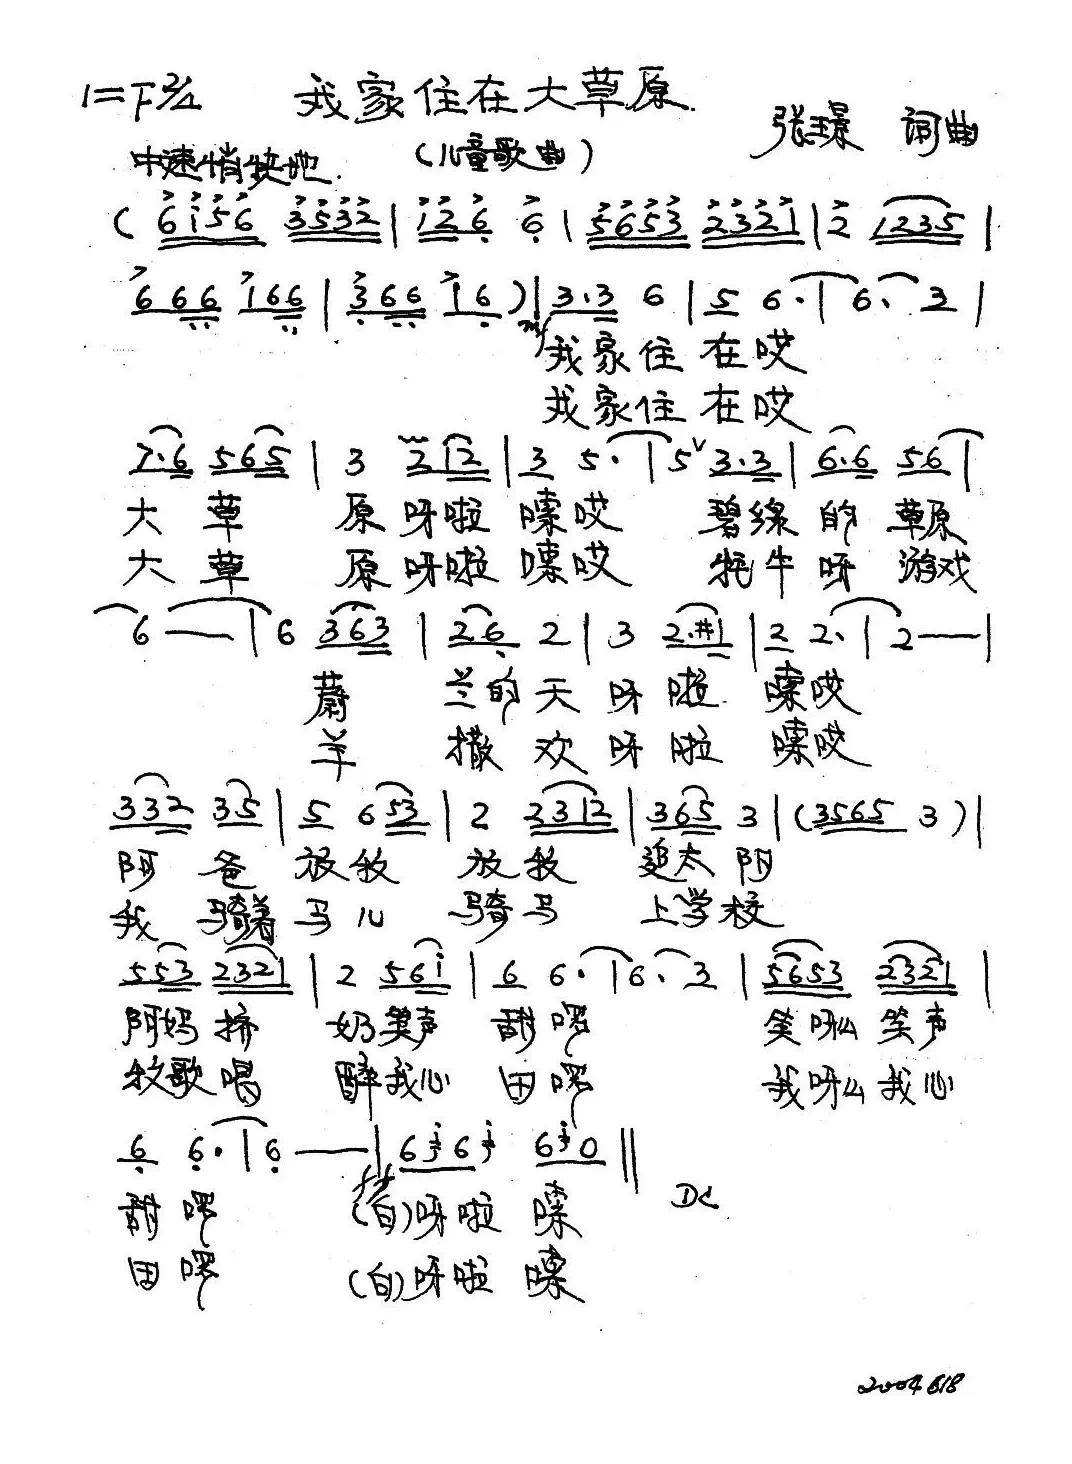 1=F 2/4 我家住在大草原
张璟 词曲
中速稍快地 (儿童歌曲)
( 6i56 3532 | i26 6 | 5653 2321 | 2 1235 |
666 i66 | 366 i6 ) | 3.3 6 | 5 6. | 6. 3 |
mf
我家住 在哎
我家住 在哎
7.6 565 | 3 212 | 3 5. | 5 3.3 | 6.6 56 |
大 草 原 呀啦 嗦哎 碧绿 的 草原
大 草 原 呀啦 嗦哎 牦牛 呀 游戏
6 — | 6 363 | 26 2 | 3 2.#1 | 2 2. | 2 — |
蔚 兰的 天 呀 啦 嗦哎
羊 撒 欢 呀 啦 嗦哎
332 35 | 5 653 | 2 2312 | 365 3 | (3565 3) |
阿 爸 放牧 放牧 追太 阳
我 骑着 马儿 骑马 上学校
553 2321 | 2 56i | 6 6. | 6. 3 | 5653 2321 |
阿妈 挤 奶 笑声 甜 啰 笑 呀么 笑声
牧歌 唱 醉 我心 田 啰 我 呀么 我心
6 6. | 6 — | 6 6 6 0 ‖
DC
甜 啰 (白)呀啦 嗦
田 啰 (白)呀啦 嗦
2004